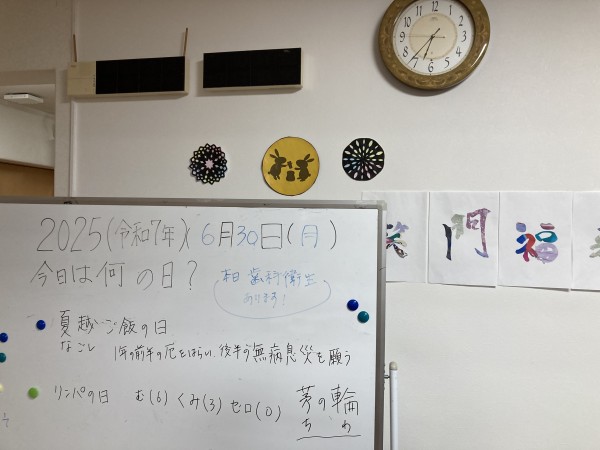 2025(令和7年) 6月30日(月)
今日は何の日?
歯科衛生
あります!
夏越ごはんの日
なごし
1年の前半の厄をはらい、後半の無病息災を願う
リンパの日 む(6)くみ(3)ゼロ(0)
茅の輪
ち わ
笑 門 福
12 1 2 3 4 5 6 7 8 9 10 11